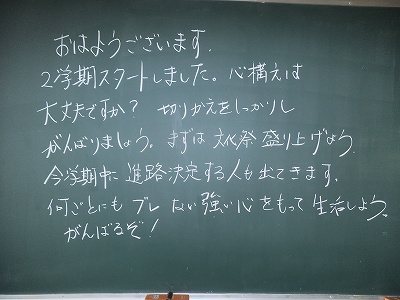 おはようございます.
2学期スタートしました。心構えは
大丈夫ですか? 切りかえをしっかりし
がんばりましょう。まずは文化祭盛り上げよう
今学期中に進路決定する人も出てきます.
何ごとにもブレない強い心をもって生活しよう。
がんばるぞ!